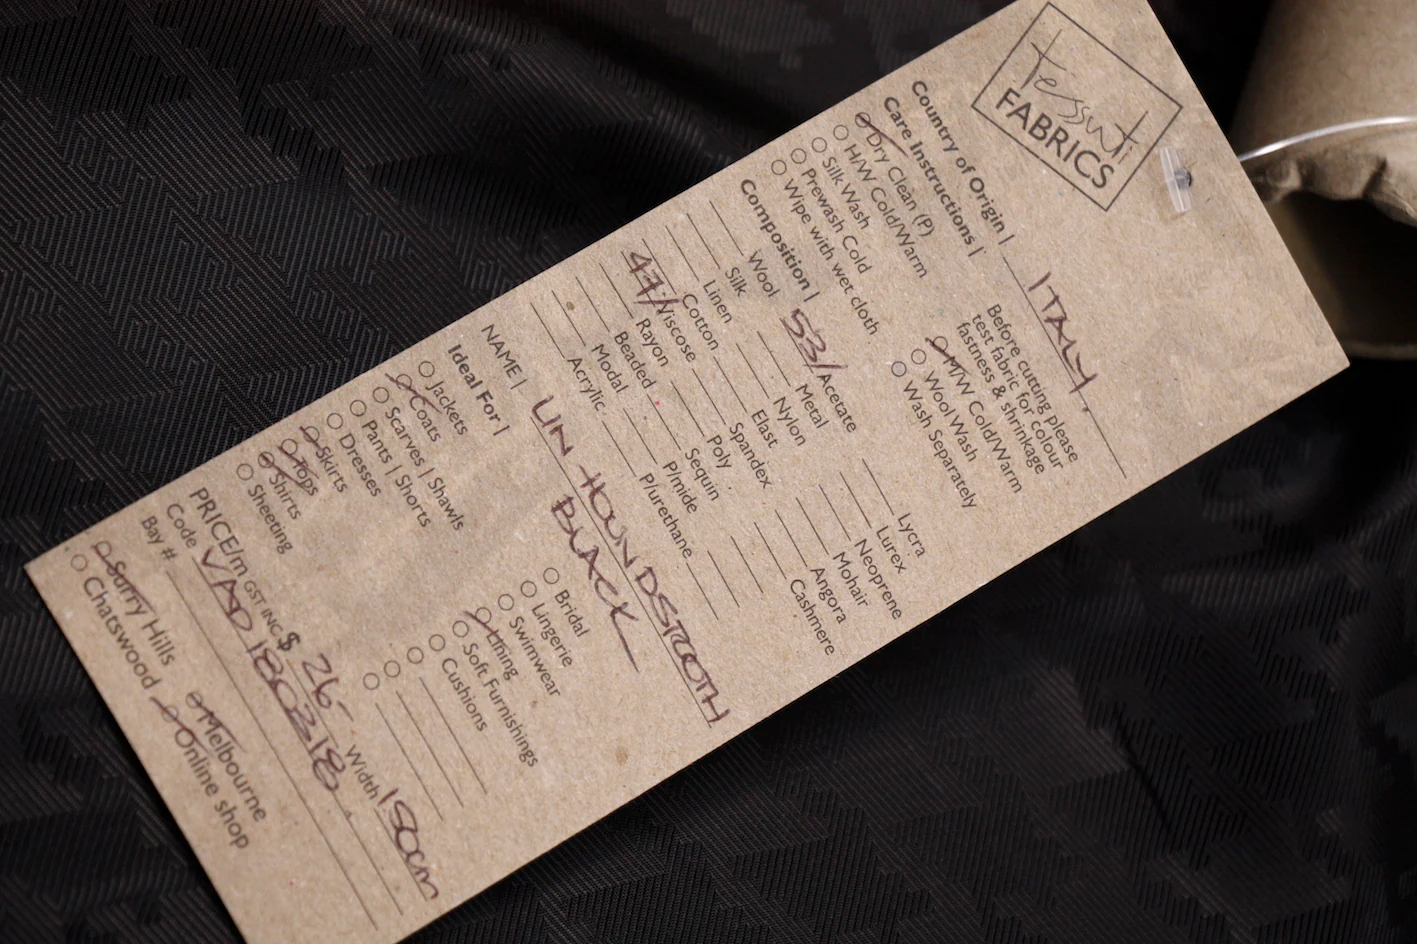 tessuti
FABRICS
Country of Origin | ITALY
Care Instructions |
Dry Clean (P)
H/W Cold/Warm
Silk Wash
Prewash Cold
Wipe with wet cloth
Before cutting please
test fabric for colour
fastness & shrinkage
M/W Cold/Warm
Wool Wash
Wash Separately
Composition |
Wool
Silk
Linen
Cotton
47/ Viscose
Rayon
Beaded
Modal
Acrylic
53/ Acetate
Metal
Nylon
Elast
Spandex
Poly
Sequin
P/mide
P/urethane
Lycra
Lurex
Neoprene
Mohair
Angora
Cashmere
NAME | LIN HOUNDSTOOTH
BLACK
Ideal For |
Jackets
Coats
Scarves | Shawls
Dresses
Pants | Shorts
Skirts
Tops
Shirts
Sheeting
Bridal
Lingerie
Swimwear
Lining
Soft Furnishings
Cushions
PRICE/m GST INC $ 26- Width 150cm
Code VAD 180318
Bay #
Surry Hills
Chatswood
Melbourne
Online shop